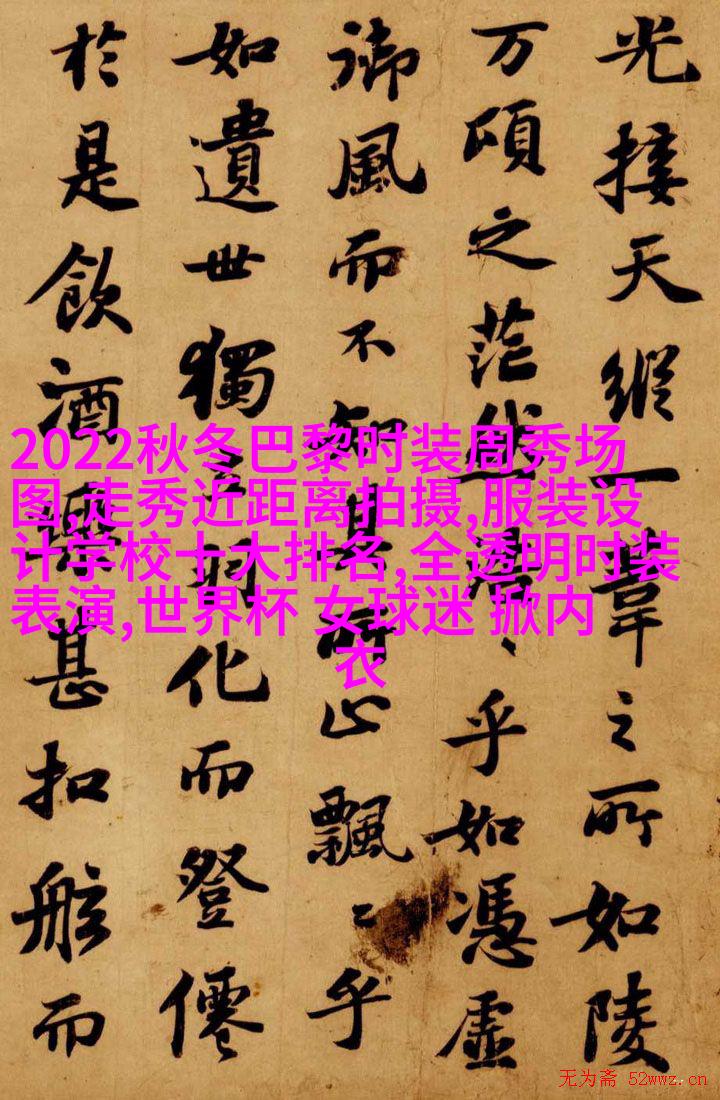 光接天縱一葦之所如陵
万頃之茫然浩〻乎如憑虛
御風而不知其所止飄〻乎
如遺世獨立羽化而登僊
於是飲酒樂甚扣舷而
2022秋冬巴黎时装周秀场
图,走秀近距离拍摄,服装设
计学校十大排名,全透明时装
表演,世界杯 女球迷 掀内
衣
无为斋 52wwz.cn